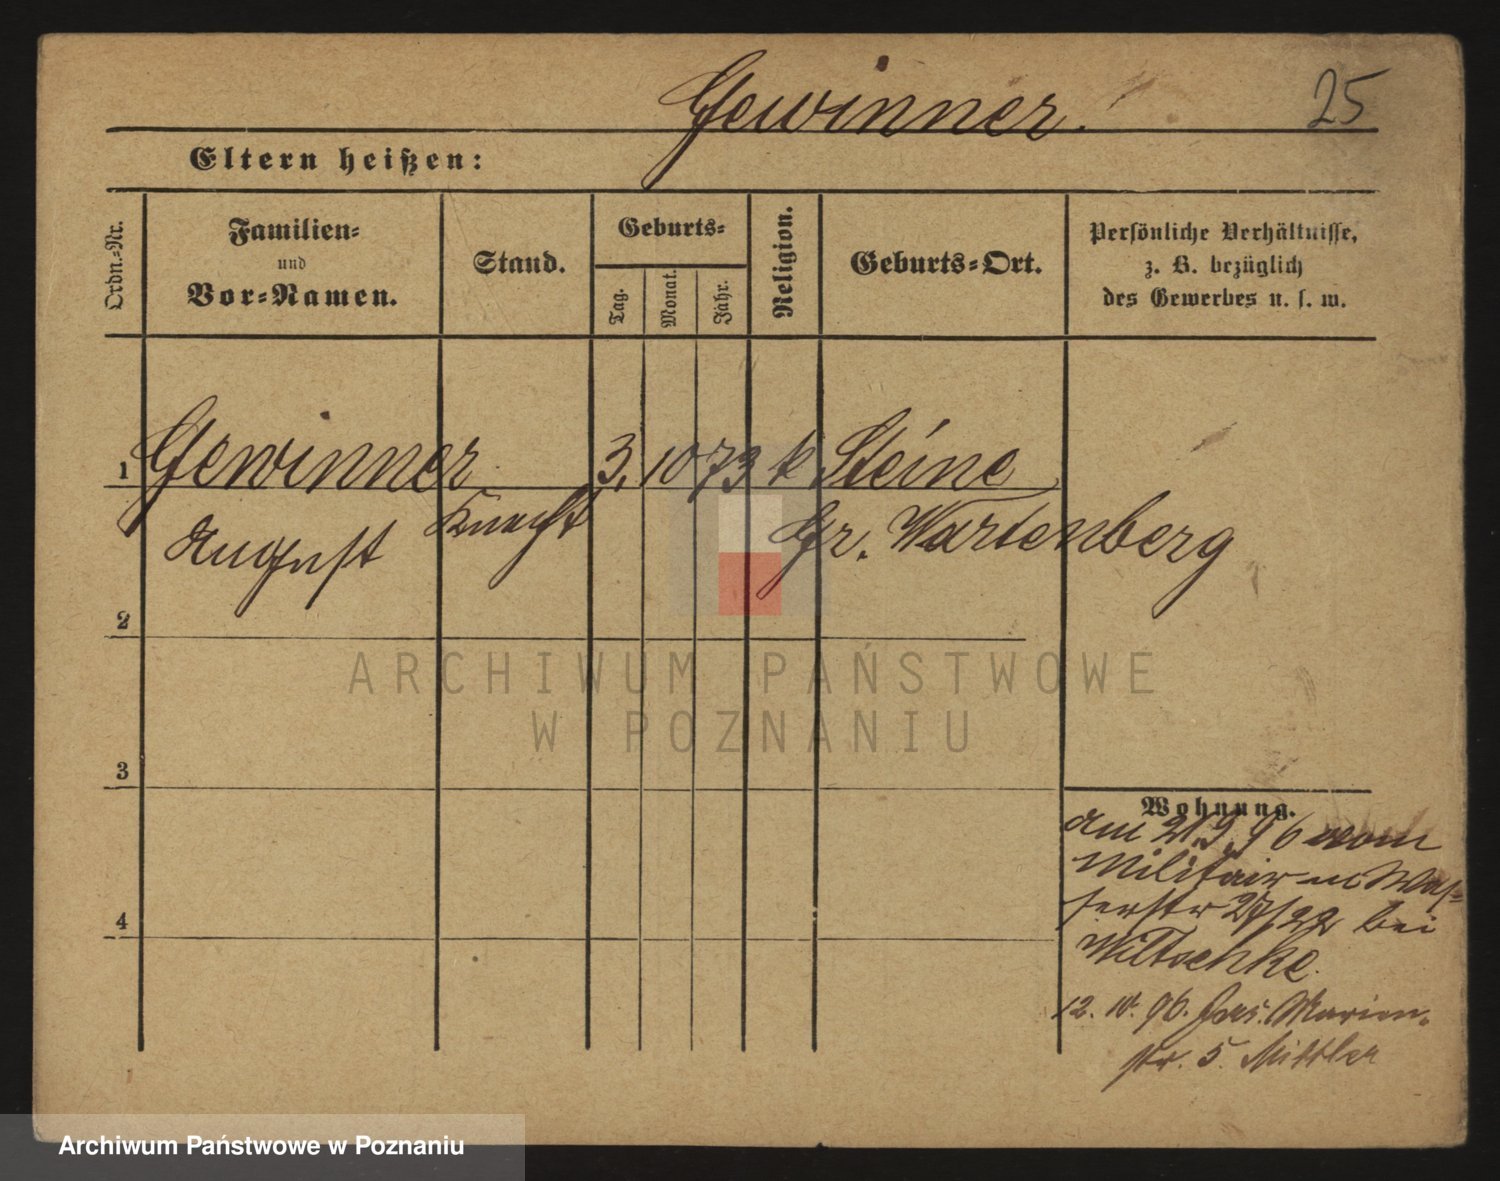 Gewinner.
25
Eltern heißen:
Ordn.-Nr.
Familien-
und
Vor-Namen.
Stand.
Geburts-
Tag.
Monat.
Jahr.
Religion.
Geburts-Ort.
Persönliche Verhältnisse,
z. B. bezüglich
des Gewerbes u. s. w.
1 Gewinner 3. 10 73 k Steine
August Knecht Gr. Wartenberg
2
ARCHIWUM PAŃSTWOWE
W POZNANIU
3
Wohnung.
am 21.9.96 vom
Militair Was-
serstr 27/22 bei
Wiltschke.
4
12. 10. 96. Marien-
str. 5. Mittler
Archiwum Państwowe w Poznaniu